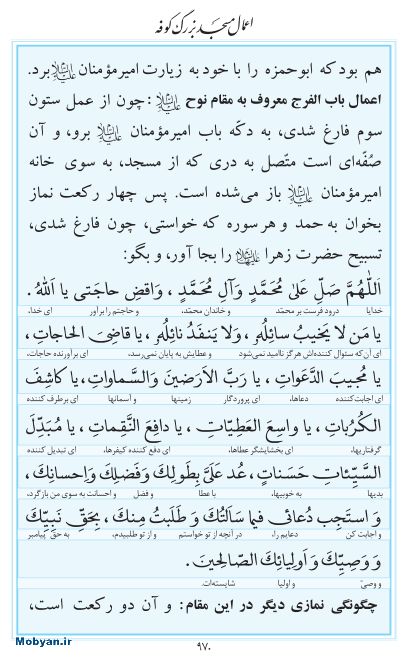 اعمال مسجد بزرگ کوفه
هم بود که ابوحمزه را با خود به زیارت امیرمؤمنان علیه‌السلام برد.
اعمال باب الفرج معروف به مقام نوح علیه‌السلام: چون از عمل ستون
سوم فارغ شدی، به دکّه باب امیرمؤمنان علیه‌السلام برو، و آن
صُفّه‌ای است متّصل به دری که از مسجد، به سوی خانه
امیرمؤمنان علیه‌السلام باز می‌شده است. پس چهار رکعت نماز
بخوان به حمد و هر سوره که خواستی، چون فارغ شدی،
تسبیح حضرت زهرا علیهاالسلام را بجا آور، و بگو:
اَللّٰهُمَّ صَلِّ عَلیٰ مُحَمَّدٍ وَآلِ مُحَمَّدٍ، وَاقضِ حاجَتی یا اَللهُ.
خدایا درود فرست بر محمّد و خاندان محمّد، و حاجتم را برآور ای خدا،
یا مَن لا یَخیبُ سائِلُهُ، وَلا یَنفَدُ نائِلُهُ، یا قاضِیَ الحاجاتِ،
ای آن‌که سئوال کننده‌اش هرگز ناامید نمی‌شود و عطایش به پایان نمی‌رسد، ای برآورنده حاجات،
یا مُجیبَ الدَّعَواتِ، یا رَبَّ الاَرَضینَ وَالسَّماواتِ، یا کاشِفَ
ای اجابت‌کننده دعاها، ای پروردگار زمینها و آسمانها ای برطرف کننده
الکُرُباتِ، یا واسِعَ العَطِیّاتِ، یا دافِعَ النَّقِماتِ، یا مُبَدِّلَ
گرفتاریها، ای بخشایشگر عطاها، ای دفع کننده کیفرها، ای تبدیل کننده
السَّیِّئاتِ حَسَناتٍ، عُد عَلَیَّ بِطَولِکَ وَفَضلِکَ وَاِحسانِکَ،
بدیها به خوبیها، با عطا و فضل و احسانت به سوی من بازگرد،
وَ استَجِب دُعائی فیما سَاَلتُکَ وَ طَلَبتُ مِنکَ، بِحَقِّ نَبِیِّکَ
و اجابت کن دعایم را، در آنچه از تو خواستم و از تو طلبیدم، به حقّ پیامبر
وَ وَصِیِّکَ وَ اَولِیائِکَ الصّالِحینَ.
و وصیّ و اولیا شایسته‌ات.
چگونگی نمازی دیگر در این مقام: و آن دو رکعت است،
۹۷۰
Mobyan.ir